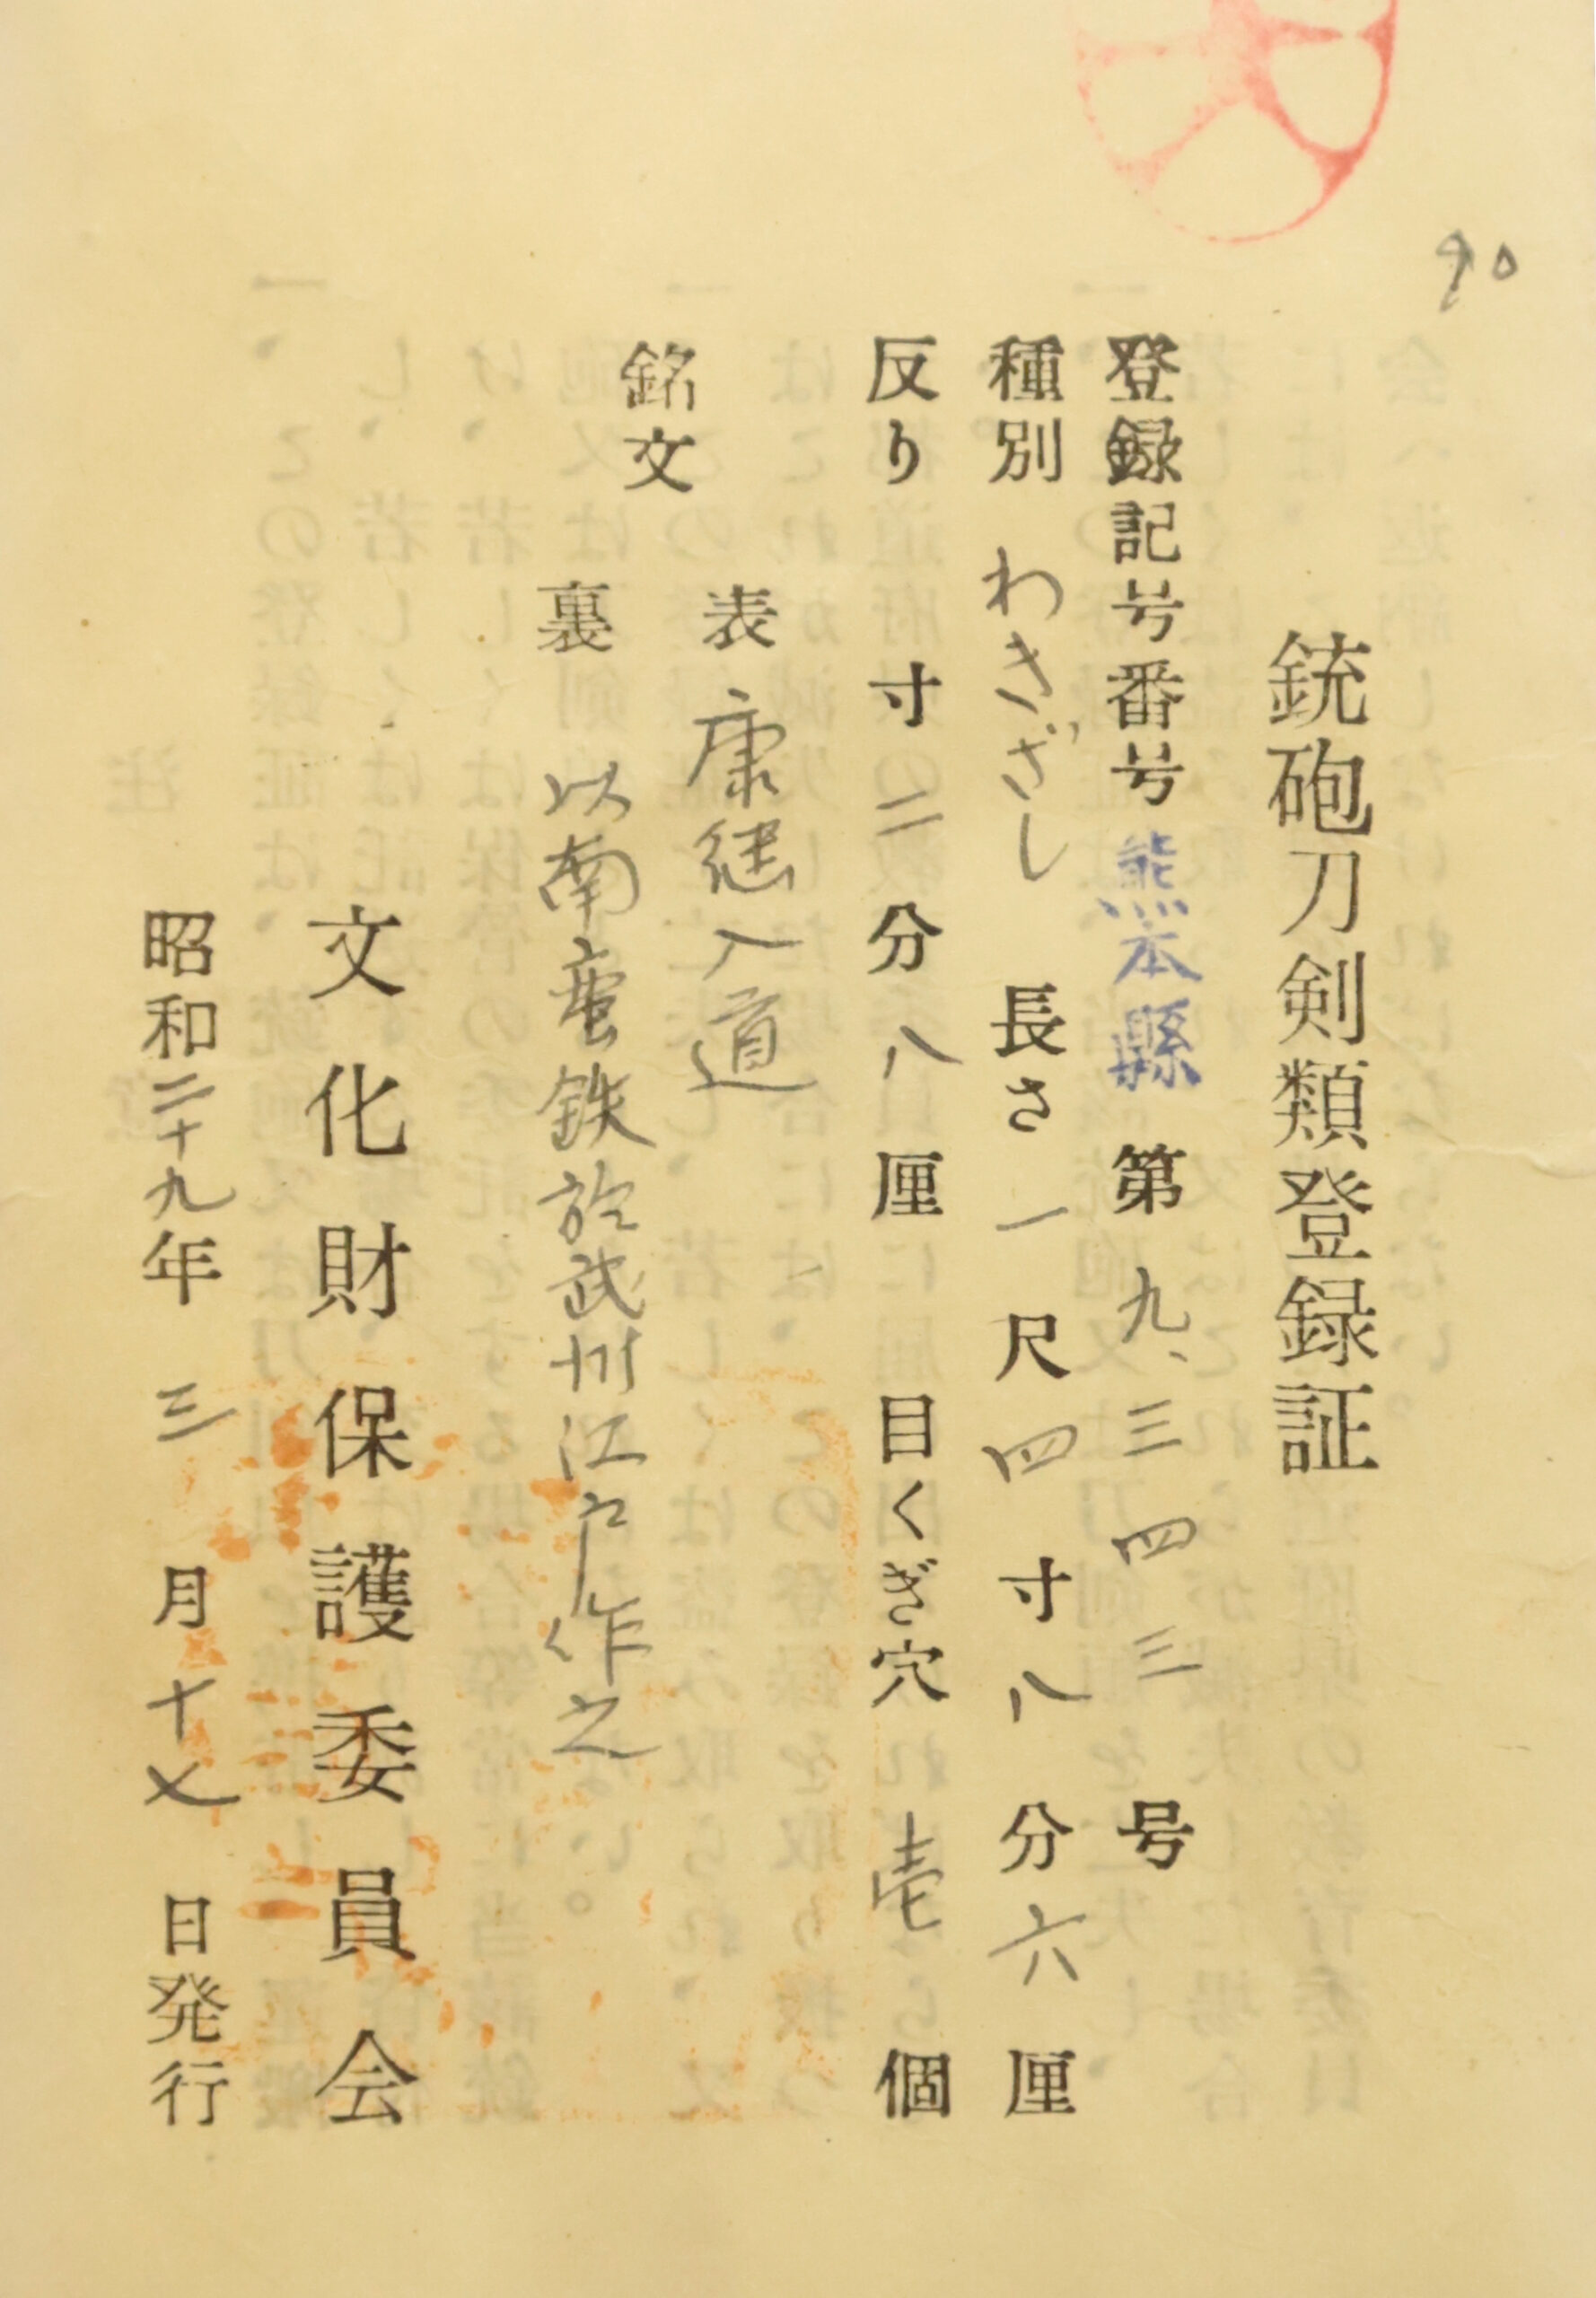 90
銃砲刀剣類登録証
登録記号番号 熊本縣 第 九、三四三 号
種別 わきざし 長さ 一 尺 四 寸 八 分 六 厘
反り 寸 二 分 八 厘 目くぎ穴 壱 個
銘文
表 康継入道
裏 以南蛮鉄於武州江戸作之
文化財保護委員会
昭和二十九年 三 月 十七 日発行